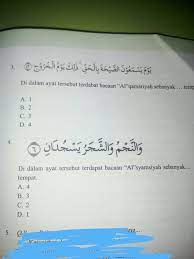 3. يَوْمَ يَسْمَعُوْنَ الصَّيْحَةَ بِالْحَقِّ ۗ ذٰلِكَ يَوْمُ الْخُرُوْجِ
Di dalam ayat tersebut terdapat bacaan "Al"qamariyah sebanyak… tempat
A. 1
B. 2
C. 3
D. 4
4. وَالنَّجْمُ وَالشَّجَرُ يَسْجُدَانِ ٦
Di dalam ayat tersebut terdapat bacaan "Al"syamsiyah sebanyak…
tempat.
A. 4
B. 3
C. 2
D. 1
5.